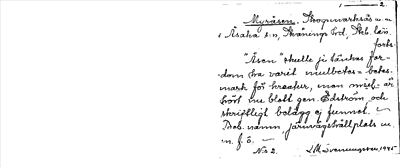 1 — 2.
Myråsen. Skogsmarksås n. o.
i Åsaka s:n, Skånings hd, Skb. län.
forts.
"Åsen" skulle ju tänkas for-
dom ha varit mulbetes = betes-
mark för kreatur, men är
hört nu blott gen. Edström, och
skriftligt belägg ej funnet. —
Prob. namn, järnvägshållplats m.
m. f. ö. —
N:o 2. 1945